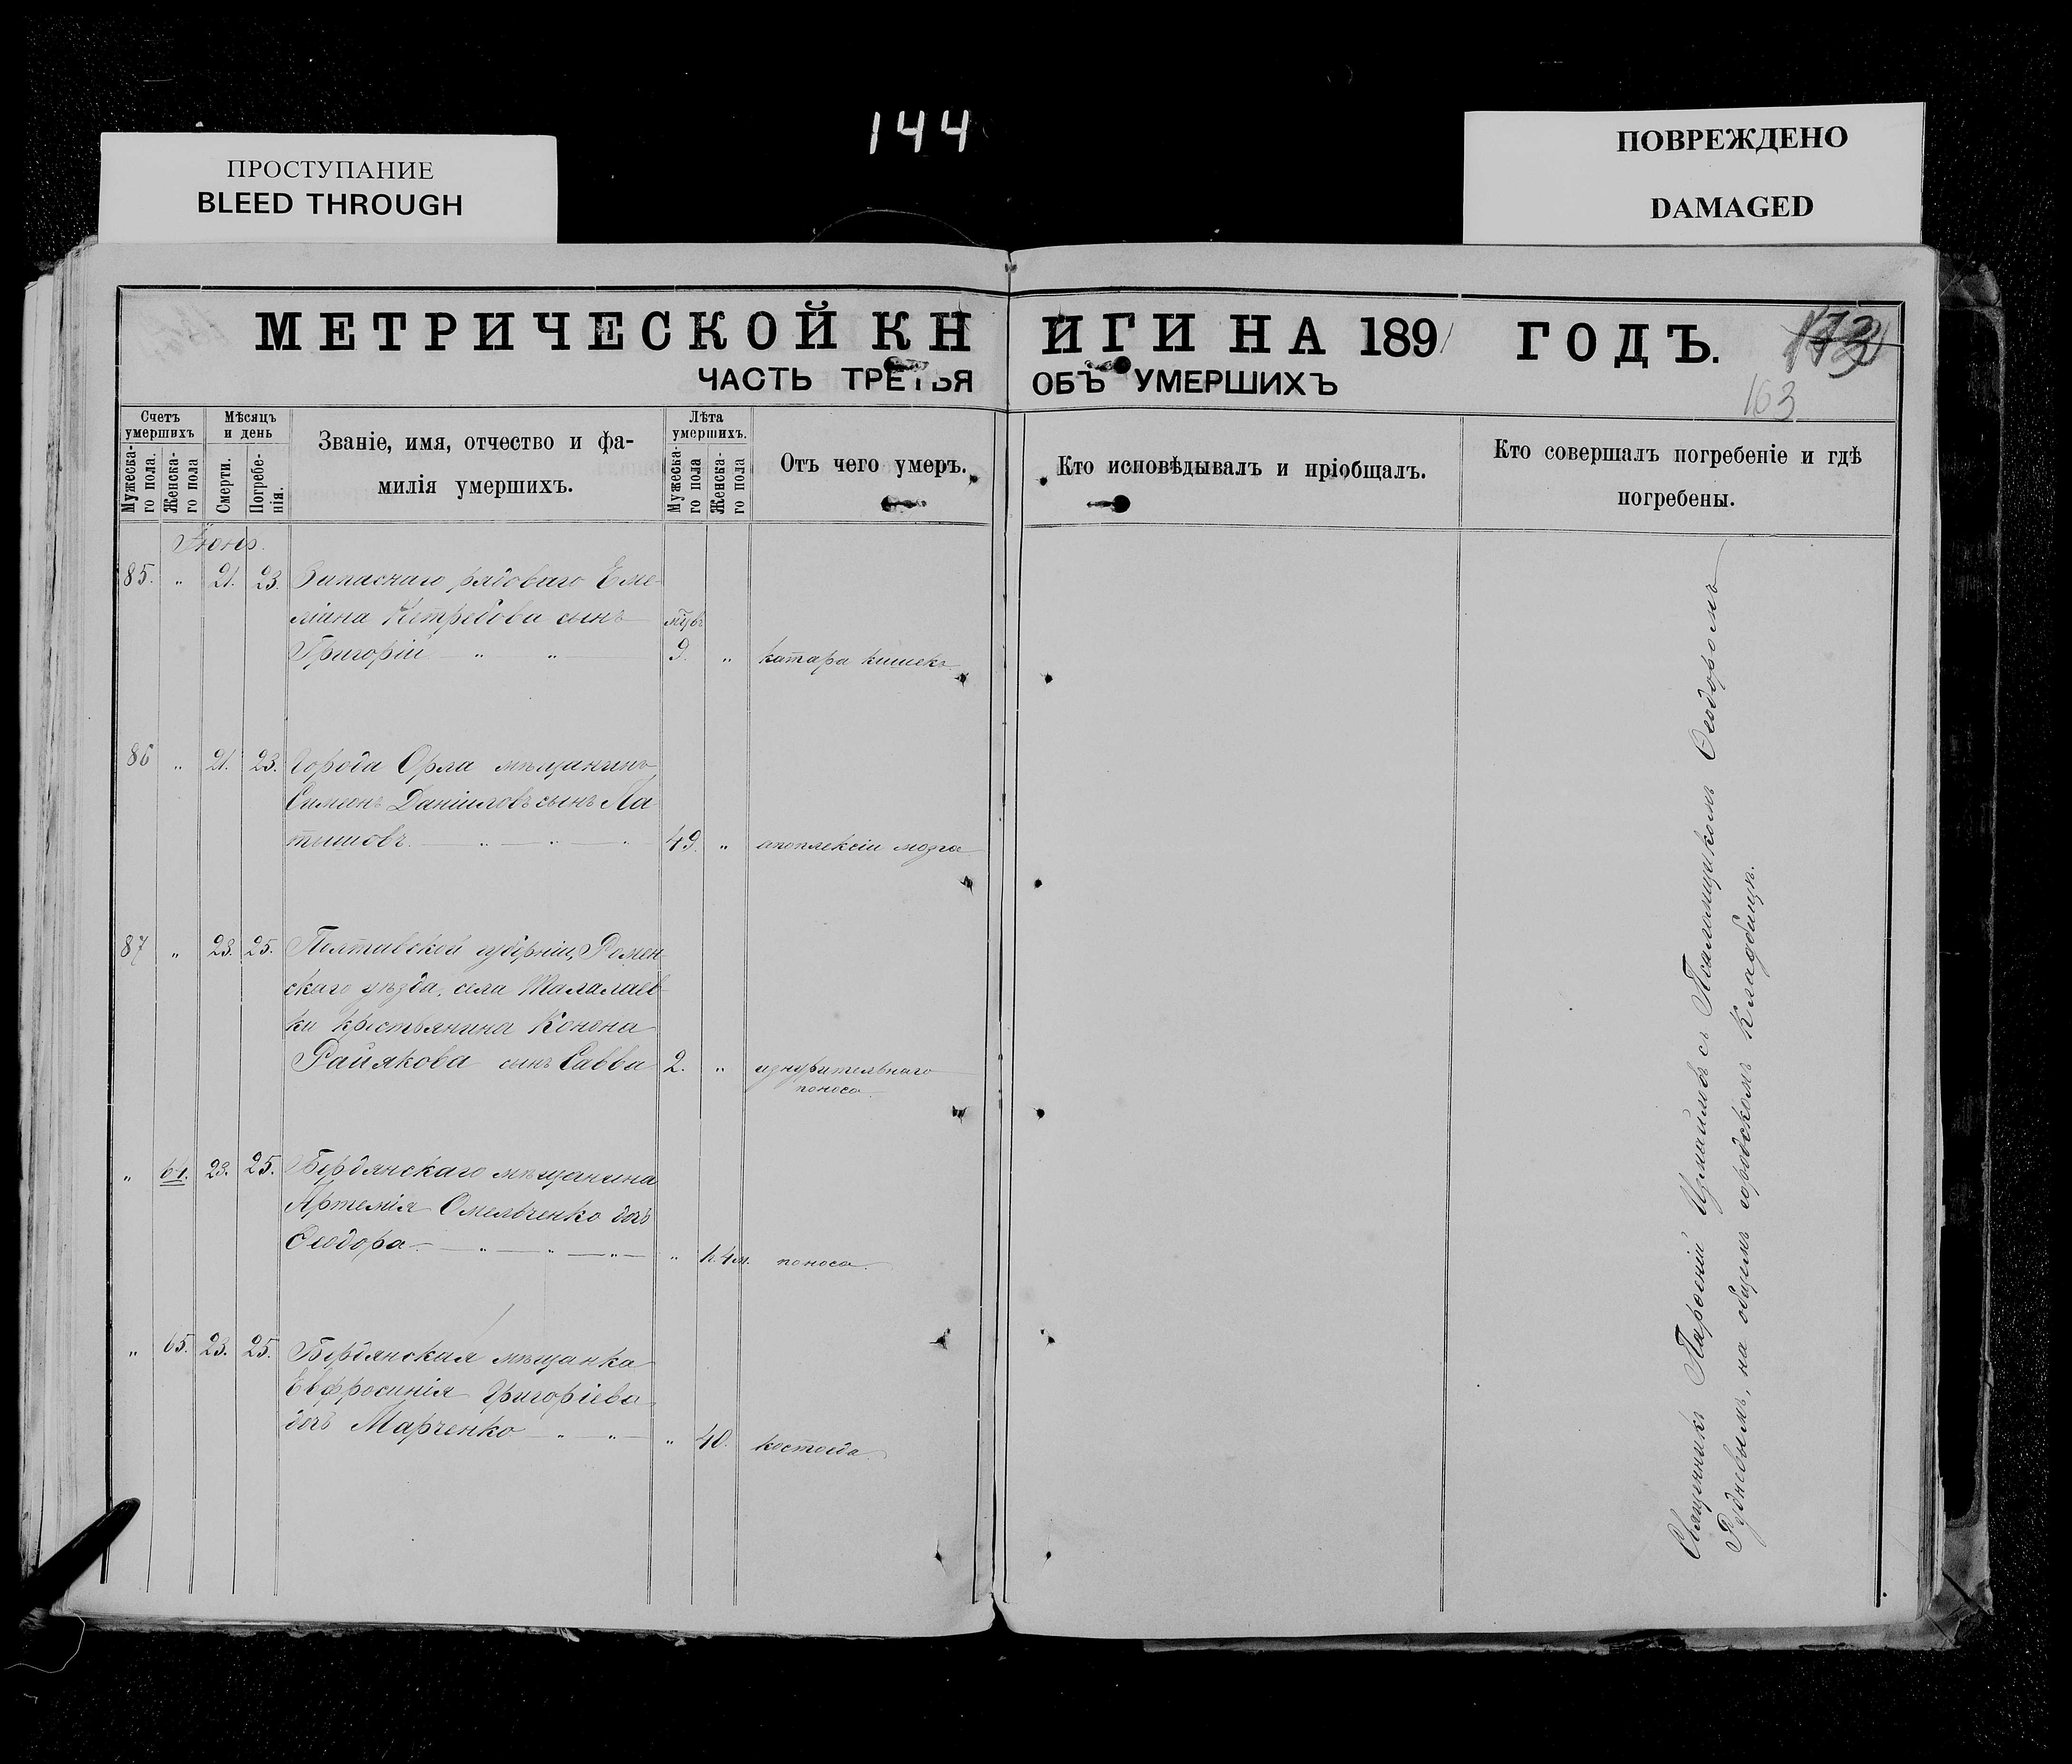 144
ПРОСТУПАНИЕ
BLEED THROUGH
ПОВРЕЖДЕНО
DAMAGED
МЕТРИЧЕСКОЙ КНИГИ НА 1891 ГОДЪ.
163
ЧАСТЬ ТРЕТЬЯ ОБЪ УМЕРШИХЪ
Счетъ умершихъ
Мужеска-го пола.
Женска-го пола
Мѣсяцъ и день
Смерти.
Погребе-нія.
Званіе, имя, отчество и фа-
милія умершихъ.
Лѣта умершихъ.
Мужеска-го пола
Женска-го пола
Отъ чего умеръ.
Кто исповѣдывалъ и пріобщалъ.
Кто совершалъ погребеніе и гдѣ
погребены.
Іюнь.
85. " 21. 23. Запаснаго рядоваго Еме-
ліана сынъ мѣц
Григорій " " 9. " катара кишекъ
86 " 21. 23. Города Орла мѣщанинъ
Симеонъ Даніиловъ сынъ Ла-
тышовъ. " " " 49. " апоплексіи мозга
87 " 23. 25. Полтавской губерніи, Ромен-
скаго уѣзда, села Талалаев-
ки крестьянина Конона
сынъ Савва 2. " изнурительнаго
поноса.
" 64. 23. 25. Бердянскаго мѣщанина
Артемія Омельченко дочь
Ѳеодора " " " " 1 г. 4 м. поноса.
" 65. 23. 25. Бердянская мѣщанка
Евфросинія Григоріева
дочь Марченко " " " 40. костоѣда
Священникъ Парѳеній Измаиловъ съ Псаломщикомъ Ѳеодоромъ
Рудневымъ, на общемъ городскомъ кладбищѣ.